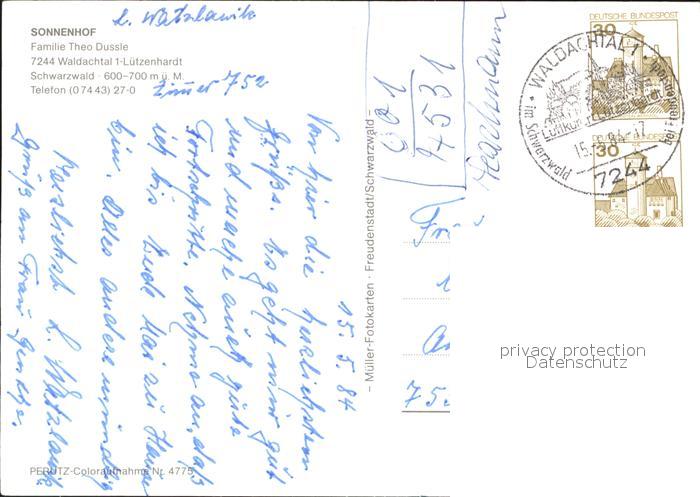 L. Watzlawik
SONNENHOF
Familie Theo Dussle
7244 Waldachtal 1-Lützenhardt
Schwarzwald · 600-700 m ü. M.
Telefon (0 74 43) 27-0
Zimmer 752
15. 5. 84
Von hier die herzlichsten
Grüße. Es geht mir gut
und mache auch gute
Fortschritte. Nehme an, daß
ich bis Ende Mai zu Hause
bin. Alles andere mündlich
Herzlichst L. Watzlawik
Gruß an Frau
PERUTZ-Coloraufnahme Nr. 4775
– Müller-Fotokarten · Freudenstadt/Schwarzwald –
001
4531
DEUTSCHE BUNDESPOST
30
DEUTSCHE BUNDESPOST
30
WALDACHTAL 1
Luftkurort Lützenhardt
im Schwarzwald
bei Freudenstadt
7244
75
privacy protection
Datenschutz